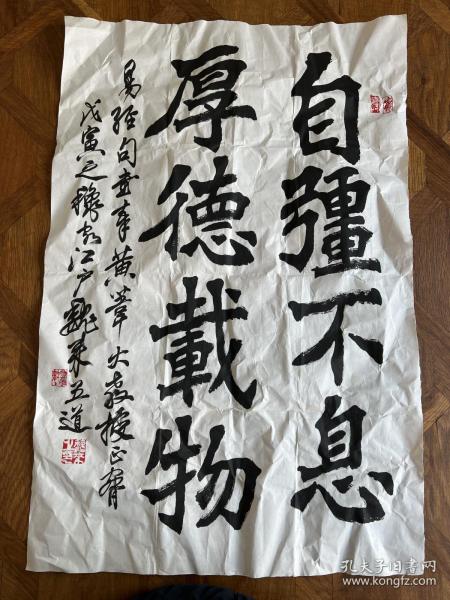 自彊不息
厚德載物
易經句書奉黃葦火教授正腕
戊寅之穐於江戶魏來五道
孔夫子旧书网
www.kongfz.com